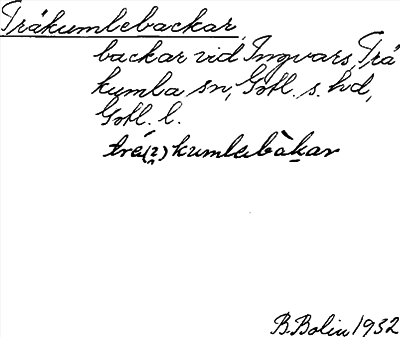 Tråkumlebackar,
backar vid Ingvars, Trå
kumla sn, Gotl. s. hd,
Gotl. l.
tré(2)kumlebàkar
B. Bolin 1932